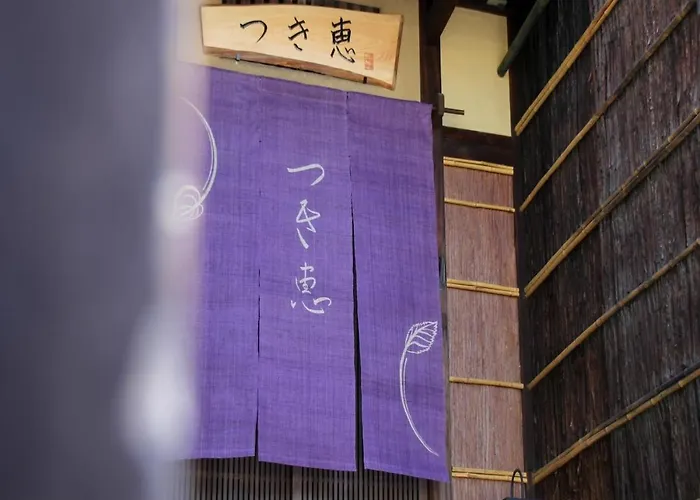 つき恵
つき恵